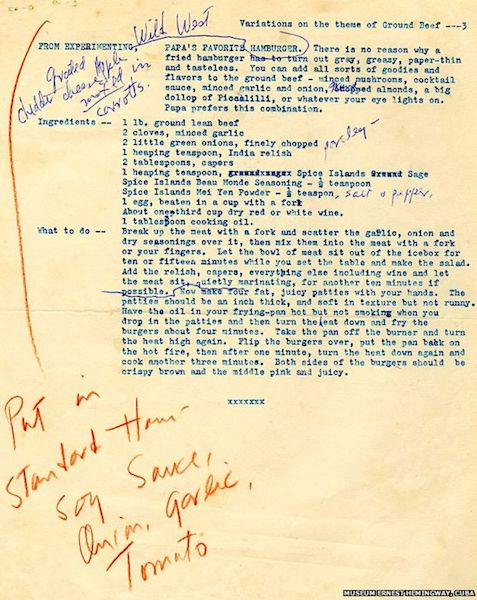 Variations on the theme of Ground Beef ---3
Wild West
FROM EXPERIMENTING, PAPA'S FAVORITE HAMBURGER. There is no reason why a
fried hamburger has to turn out gray, greasy, paper-thin
and tasteless. You can add all sorts of goodies and
flavors to the ground beef - minced mushrooms, cocktail
sauce, minced garlic and onion, chopped almonds, a big
dollop of Piccalilli, or whatever your eye lights on.
Papa prefers this combination.
grated apple
cheddar cheese
carrots.
Ingredients -- 1 lb. ground lean beef
2 cloves, minced garlic
2 little green onions, finely chopped
parsley-
1 heaping teaspoon, India relish
2 tablespoons, capers
1 heaping teaspoon, Spice Islands Sage
Spice Islands Beau Monde Seasoning - ½ teaspoon
Spice Islands Mei Yen Powder - ½ teaspon, salt & pepper,
1 egg, beaten in a cup with a fork
About one third cup dry red or white wine.
1 tablespoon cooking oil.
What to do -- Break up the meat with a fork and scatter the garlic, onion and
dry seasonings over it, then mix them into the meat with a fork
or your fingers. Let the bowl of meat sit out of the icebox for
ten or fifteen minutes while you set the table and make the salad.
Add the relish, capers, everything else including wine and let
the meat sit, quietly marinating, for another ten minutes if
possible. Now make four fat, juicy patties with your hands. The
patties should be an inch thick, and soft in texture but not runny.
Have the oil in your frying-pan hot but not smoking when you
drop in the patties and then turn the heat down and fry the
burgers about four minutes. Take the pan off the burner and turn
the heat high again. Flip the burgers over, put the pan back on
the hot fire, then after one minute, turn the heat down again and
cook another three minutes. Both sides of the burgers should be
crispy brown and the middle pink and juicy.
xxxxxxx
Put in
Standard Ham-
Soy Sauce,
Onion, Garlic,
Tomato
MUSEUM ERNEST HEMINGWAY, CUBA